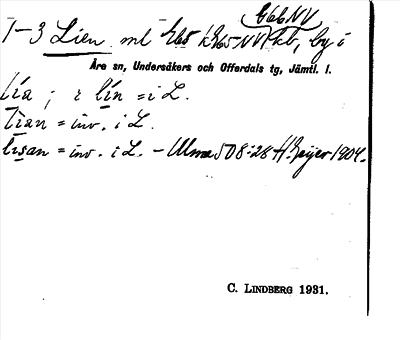 G66NV
1-3 Lien ml G65 kb, by i
Åre sn, Undersåkers och Offerdals tg, Jämtl. l.
lía ; i lín = i L.
lian = inv. i L.
lisan = inv. i L. - Ulma 508:28 H. Geijer 1904.
C. LINDBERG 1931.